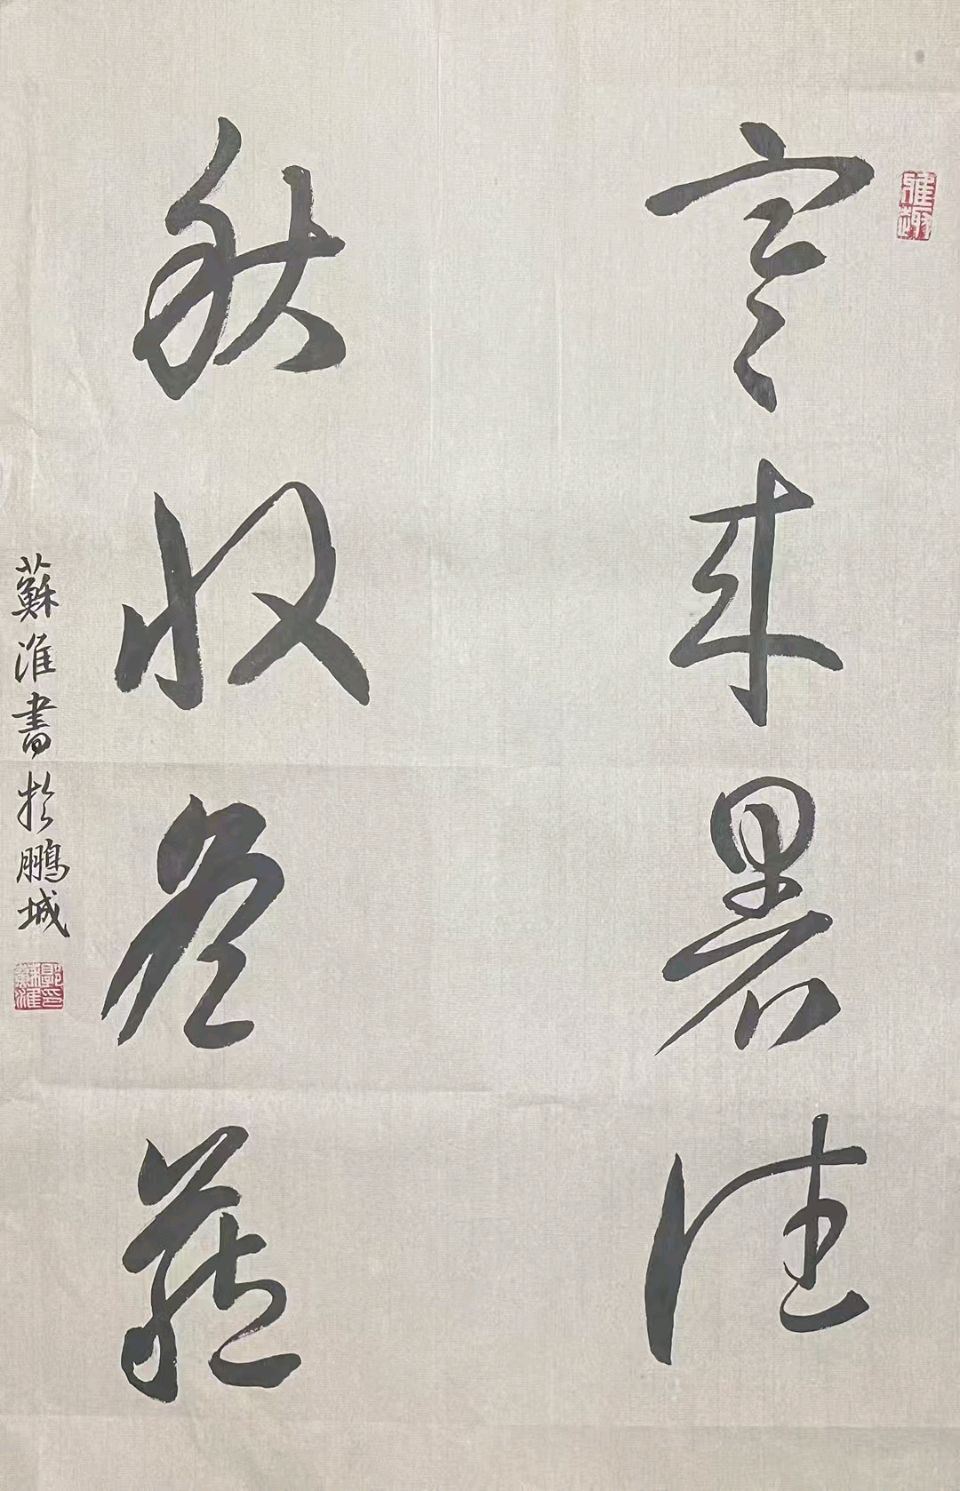 寒来暑往
秋收冬藏
蘇淮書於鵬城